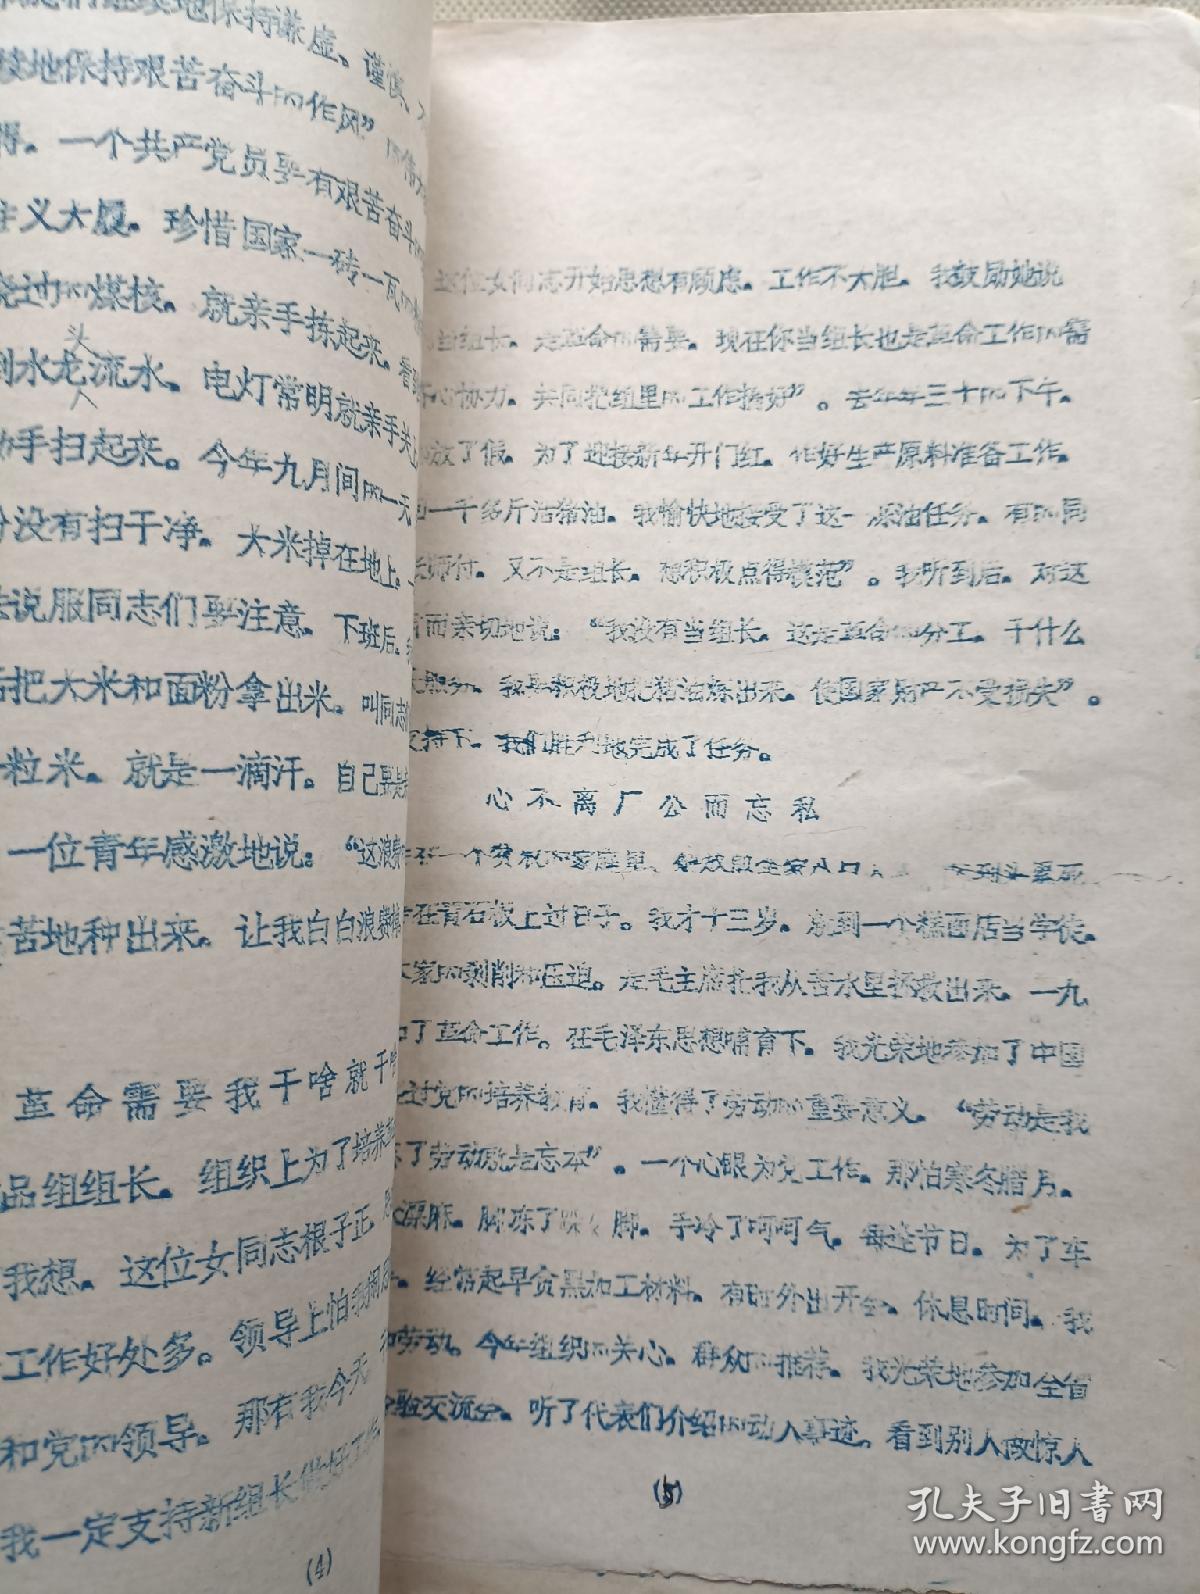 继续地保持谦虚、谨慎、
地保持艰苦奋斗的作风”的伟大
得。一个共产党员要有艰苦奋斗的
主义大厦。珍惜国家一砖一瓦的
烧过的煤核。就亲手拣起来。看到
到水龙头流水。电灯常明就亲手关
动手扫起来。今年九月间的一天
没有扫干净。大米掉在地上。
去说服同志们要注意。下班后。
后把大米和面粉拿出来。叫同志
粒米。就是一滴汗。自己要是
一位青年感激地说：“这浪费
苦地种出来。让我白白浪费
革命需要我干啥就干啥
品组组长。组织上为了培养
我想。这位女同志根子正
工作好处多。领导上怕我搁
和党的领导。那有我今天
我一定支持新组长做好工作
(4)
这位女同志开始思想有顾虑。工作不大胆。我鼓励她说
当组长。是革命的需要。现在你当组长也是革命工作的需
心协力。共同把组里的工作搞好”。去年年三十的下午。
放了假。为了迎接新年开门红。作好生产原料准备工作。
一千多斤活猪油。我愉快地接受了这一炼油任务。有的同
师付。又不是组长。想积极点得模范”。我听到后。对这
而亲切地说：“我没有当组长。这是革命的分工。干什么
服务。我要积极地把猪油炼出来。使国家财产不受损失”。
支持下。我们胜利地完成了任务。
心不离厂公而忘私
在一个贫农的家庭里。解放前全家八口人
在青石板上过日子。我才十三岁。就到一个糕面店当学徒。
家的剥削和压迫。是毛主席把我从苦水里拯救出来。一九
加了革命工作。在毛泽东思想哺育下。我光荣地参加了中国
过党的培养教育。我懂得了劳动的重要意义。“劳动是我
了劳动就是忘本”。一个心眼为党工作。那怕寒冬腊月。
脚冻了跺跺脚。手冷了呵呵气。每逢节日。为了车
经常起早贪黑加工材料。有时外出开会。休息时间。我
劳动。今年组织的关心。群众的推荐。我光荣地参加全省
验交流会。听了代表们介绍的动人事迹。看到别人做惊人
(5)
孔夫子旧书网
www.kongfz.com